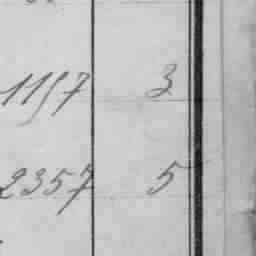 1157 3
2357 5